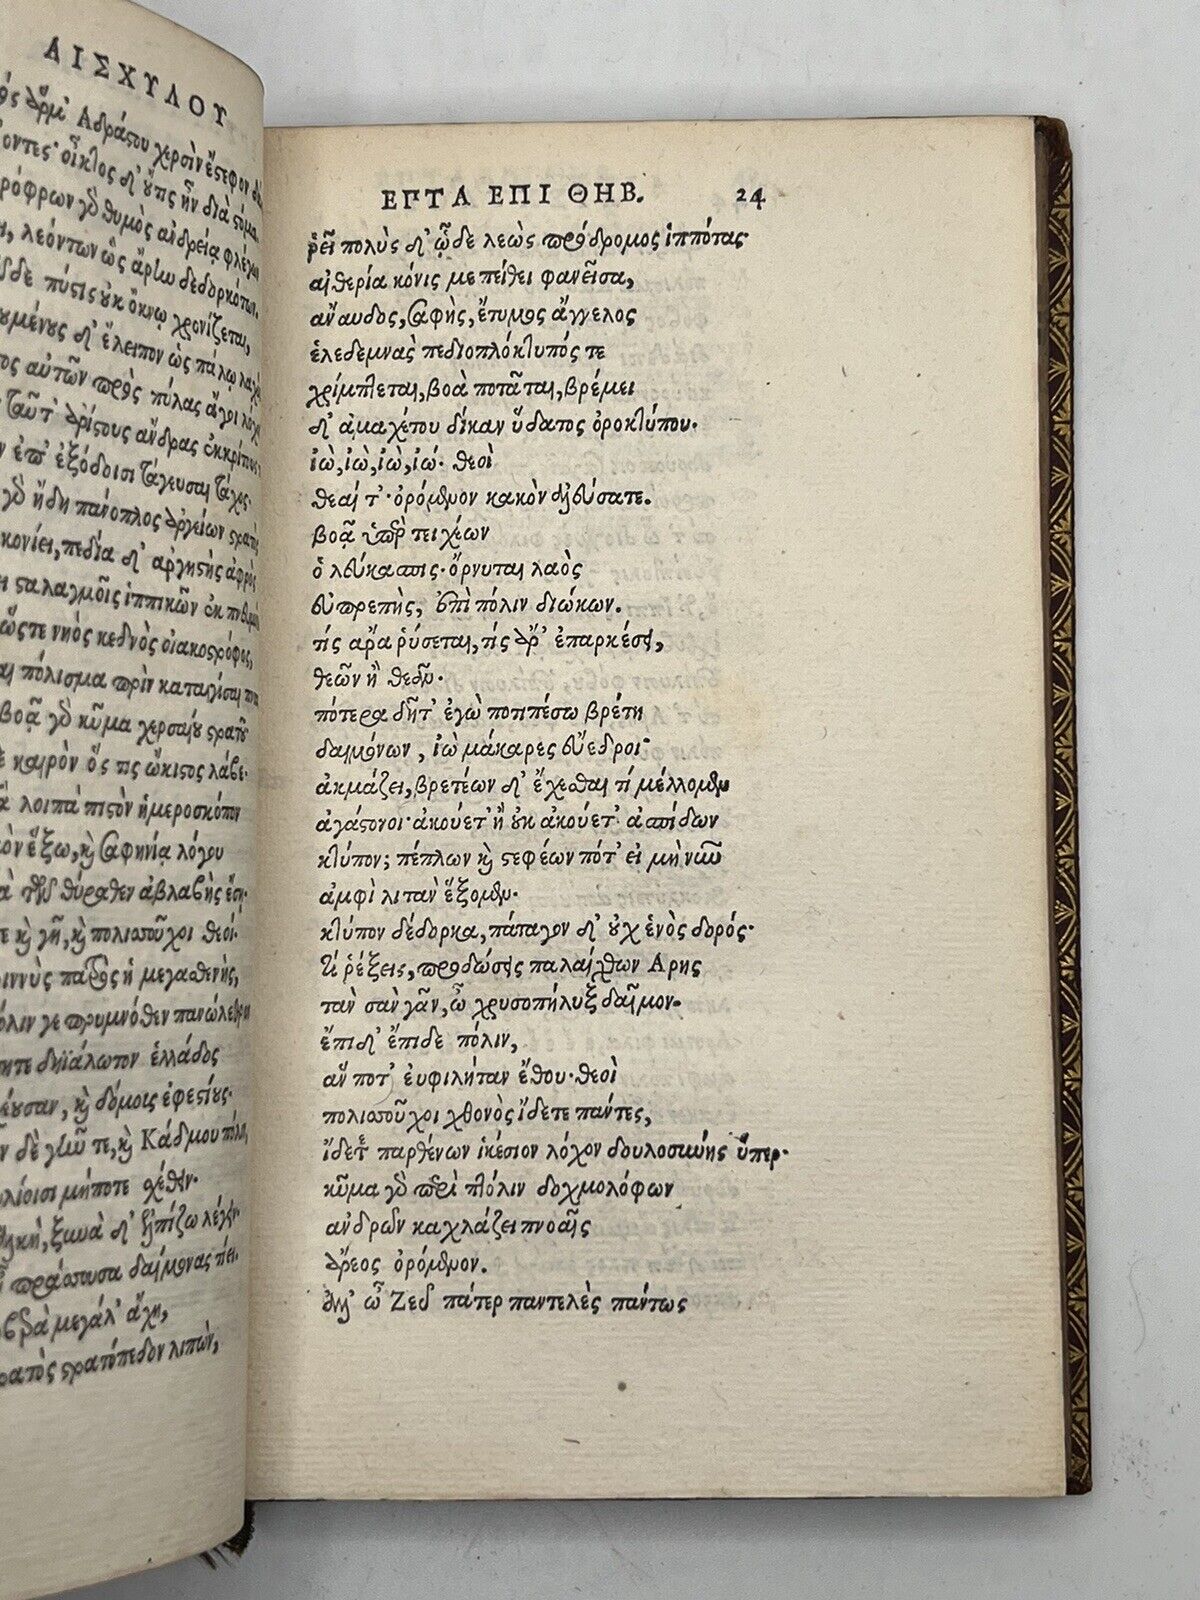 ΑΙΣΧΥΛΟΥ
Ἀδράστου χερσὶν ἔστεφον
οἶκτος δ' οὔτις ἦν διὰ στόμα.
γὸ θυμὸς αἰδρείᾳ φλέγων
λεόντων ὡς ἄρην δεδορκότων.
πύστις οὐκ ὄκνῳ χρονίζεται,
δ' ἔλειπον ὡς πάλῳ
αὐτῶν πρὸς πύλας ἄγοι
ταῦτ' ἀρίστους ἄνδρας ἐκκρίτους
ἐπ' ἐξόδοισι τάγευσαι τάχος.
γὸ ἤδη πάνοπλος ἀργείων στρατὸς
κονίει, πεδία δ' ἀργηστὴς ἀφρὸς
σταλαγμοῖς ἱππικῶν ἐκ
ὥστε νηὸς κεδνὸς οἰακοστρόφος,
πόλισμα πρὶν καταιγίσαι
βοᾷ γὸ κῦμα χερσαῖον στρατοῦ
καιρὸν ὅς τις ὤκιστος λάβε·
λοιπὰ πιστὸν ἡμεροσκόπον
ἕξω, καὶ σαφηνίᾳ λόγου
τῶν θύραθεν ἀβλαβὴς ἔσῃ.
καὶ γῆ, καὶ πολιοσοῦχοι θεοί·
πατρὸς ἡ μεγασθενὴς,
γε πρυμνόθεν πανώλεθρον
δηϊάλωτον ἑλλάδος
καὶ δόμοις ἐφεστίους·
δὲ γῆν τε, καὶ Κάδμου πόλιν
μήποτε σχεθεῖν·
ξυνὰ δ' ἐλπίζω λέγειν·
πράσσουσα δαίμονας τίει.
μεγάλ' ἄχη,
στρατόπεδον λιπὼν,
ΕΠΤΑ ΕΠΙ ΘΗΒ. 24
ῥεῖ πολὺς δ' ᾧδε λεὼς πρόδρομος ἱππότας·
αἰθερία κόνις με πείθει φανεῖσα,
ἄναυδος, σαφὴς, ἔτυμος ἄγγελος
ἑλεδεμνὰς πεδιοπλόκτυπός τε
χρίμπτεται, βοὰ ποτᾶται, βρέμει
δ' ἀμαχέτου δίκαν ὕδατος ὀροκτύπου.
ἰὼ, ἰὼ, ἰὼ, ἰώ· θεοὶ
θεαί τ' ὀρόμενον κακὸν ἀλεύσατε.
βοᾷ ὑπὲρ τειχέων
ὁ λεύκασπις· ὄρνυται λαὸς
εὐπρεπὴς, ἐπὶ πόλιν διώκων.
τίς ἄρα ῥύσεται, τίς ἄρ' ἐπαρκέσει,
θεῶν ἢ θεᾶν.
πότερα δῆτ' ἐγὼ ποτιπέσω βρέτη
δαιμόνων, ἰὼ μάκαρες εὔεδροι·
ἀκμάζει, βρετέων δ' ἔχεσθαι τί μέλλομεν
ἀγάστονοι· ἀκούετ' ἢ οὐκ ἀκούετ' ἀσπίδων
κτύπον; πέπλων καὶ στεφέων πότ' εἰ μὴ νῦν
ἀμφὶ λιτὰν ἕξομεν.
κτύπον δέδορκα, πάταγον δ' οὐχ ἑνὸς δορός·
τί ῥέξεις, προδώσεις παλαίχθων Ἄρης
τὰν σὰν γᾶν, ὦ χρυσοπήληξ δαῖμον.
ἔπιδ' ἔπιδε πόλιν,
ἅν ποτ' εὐφιλήταν ἔθου· θεοὶ
πολιοσοῦχοι χθονὸς ἴδετε πάντες,
ἴδετε παρθένων ἱκέσιον λόχον δουλοσύνης ὕπερ·
κῦμα γὸ περὶ πτόλιν δοχμολόφων
ἀνδρῶν καχλάζει πνοαῖς
ἄρεος ὀρόμενον.
ἀλλ' ὦ Ζεῦ πάτερ παντελὲς πάντως